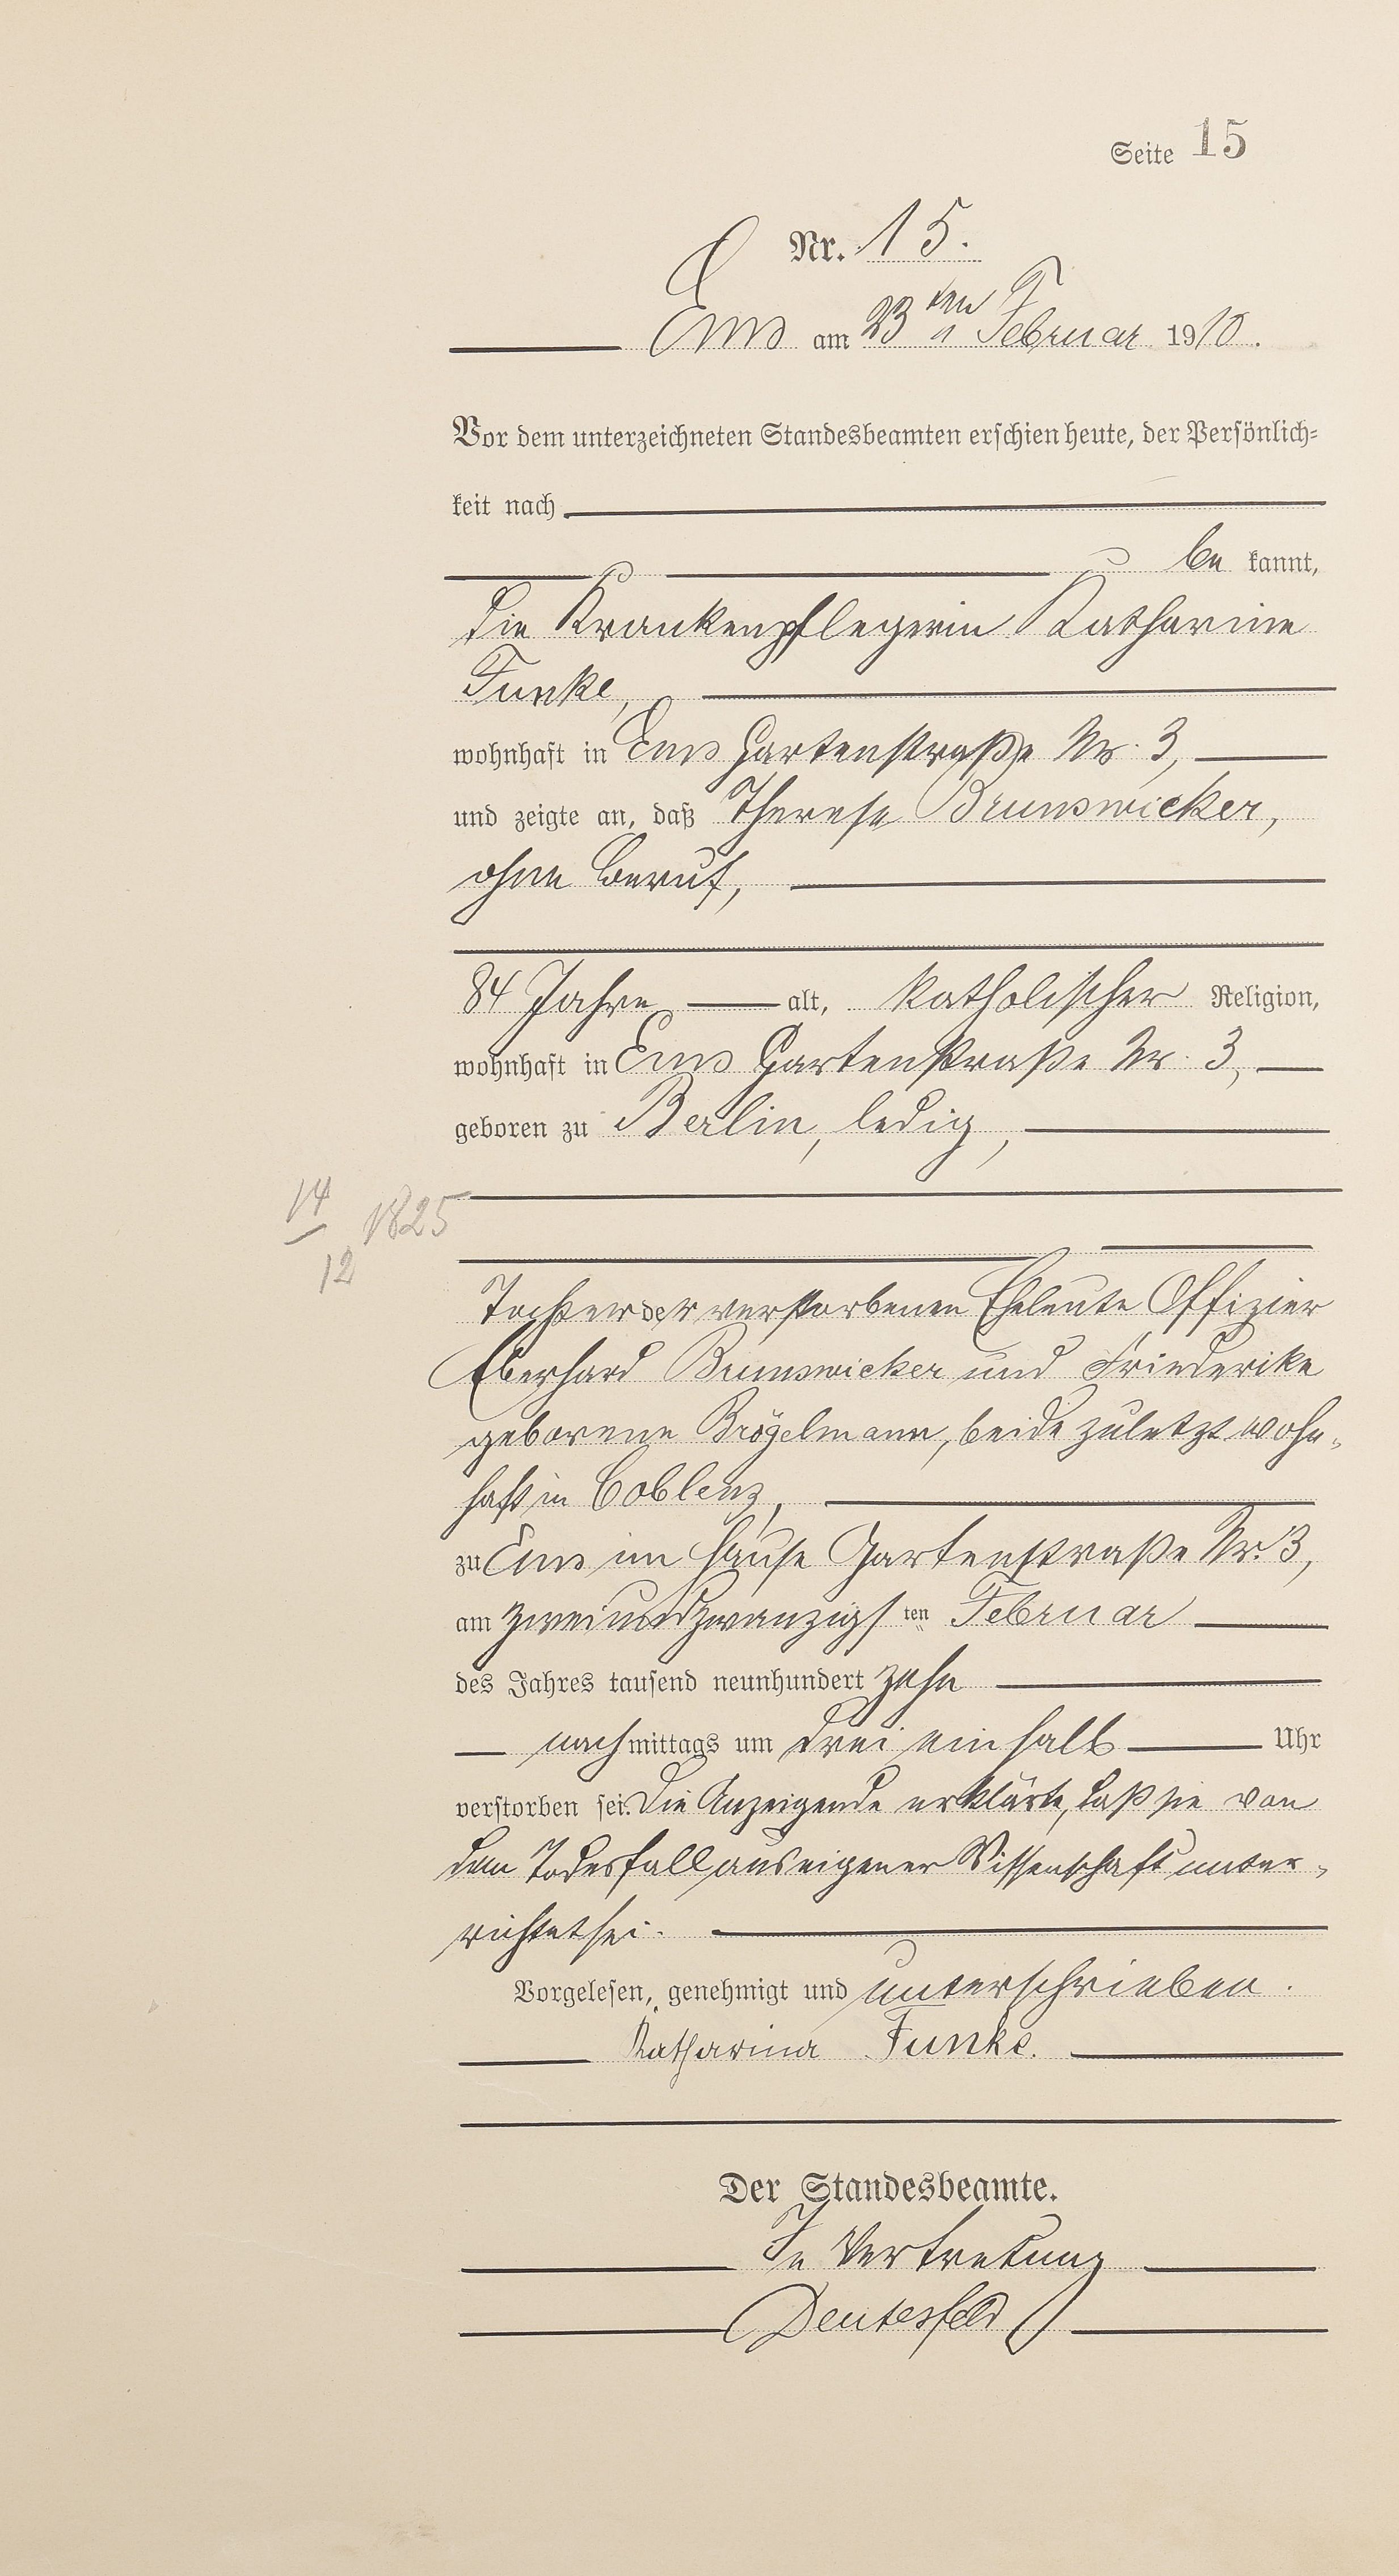 Seite 15
Nr. 15.
Ems am 23ten Februar 1910.
Vor dem unterzeichneten Standesbeamten erschien heute, der Persönlich-
keit nach
be kannt,
die Krankenpflegerin Katharina
Funke,
wohnhaft in Ems Gartenstraße Nr. 3,
und zeigte an, daß Therese Brunswicker,
ohne Beruf,
84 Jahre alt, katholischer Religion,
wohnhaft in Ems Gartenstraße Nr. 3,
geboren zu Berlin, ledig,
14/12 1825
Tochter der verstorbenen Eheleute Offizier
Eberhard Brunswicker und Friederike
geborene Brögelmann, beide zuletzt wohn-
haft in Coblenz,
zu Ems im Hause Gartenstraße Nr. 3,
am zweiundzwanzigsten Februar
des Jahres tausend neunhundert zehn
nachmittags um drei einhalb Uhr
verstorben sei. Die Anzeigende erklärte, daß sie von
dem Todesfall aus eigener Wissenschaft unter-
richtet sei.
Vorgelesen, genehmigt und unterschrieben.
Katharina Funke.
Der Standesbeamte.
In Vertretung